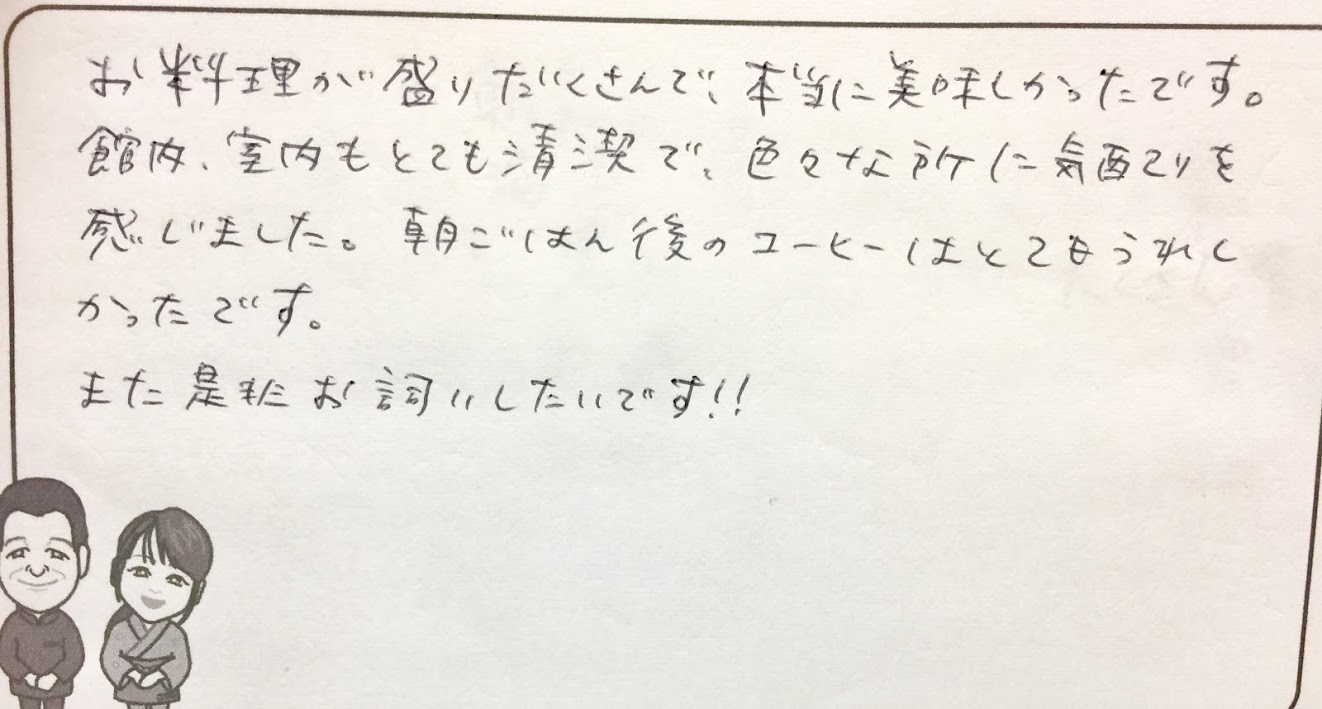 お料理が盛りだくさんで、本当に美味しかったです。
館内、室内もとても清潔で、色々な所に気配りを
感じました。朝ごはん後のコーヒーはとてもうれし
かったです。
また是非お伺いしたいです!!